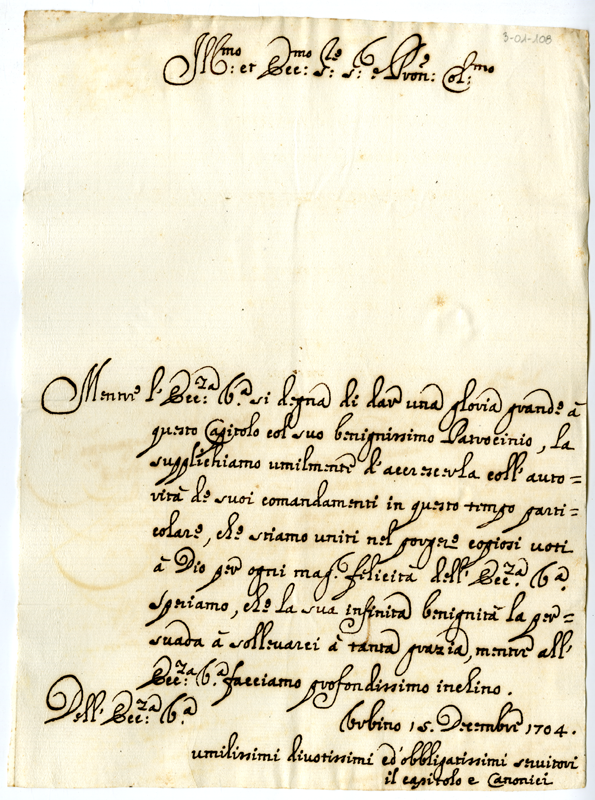 3-01-108
Ill:mo et Ecc:mo S:re S: e Pron:e Col:mo
Mentre l'Ecc:za V:a si degna di dar una gloria grande à
questo Capitolo col suo benignissimo Patrocinio, la
supplichiamo umilmente d'accrescerla coll'auto=
rità de suoi comandamenti in questo tempo parti=
colare, che stiamo uniti nel porgere copiosi voti
à Dio per ogni mag:e felicità dell'Ecc:za V:a
speriamo, che la sua infinita benignità la per=
suada à sollevarci à tanta grazia, mentre all'
Ecc:za V:a facciamo profondissimo inchino.
Dell'Ecc:za V:a
Urbino 15. Decembre 1704.
umilissimi divotissimi ed obbligatissimi servitori
il capitolo e Canonici